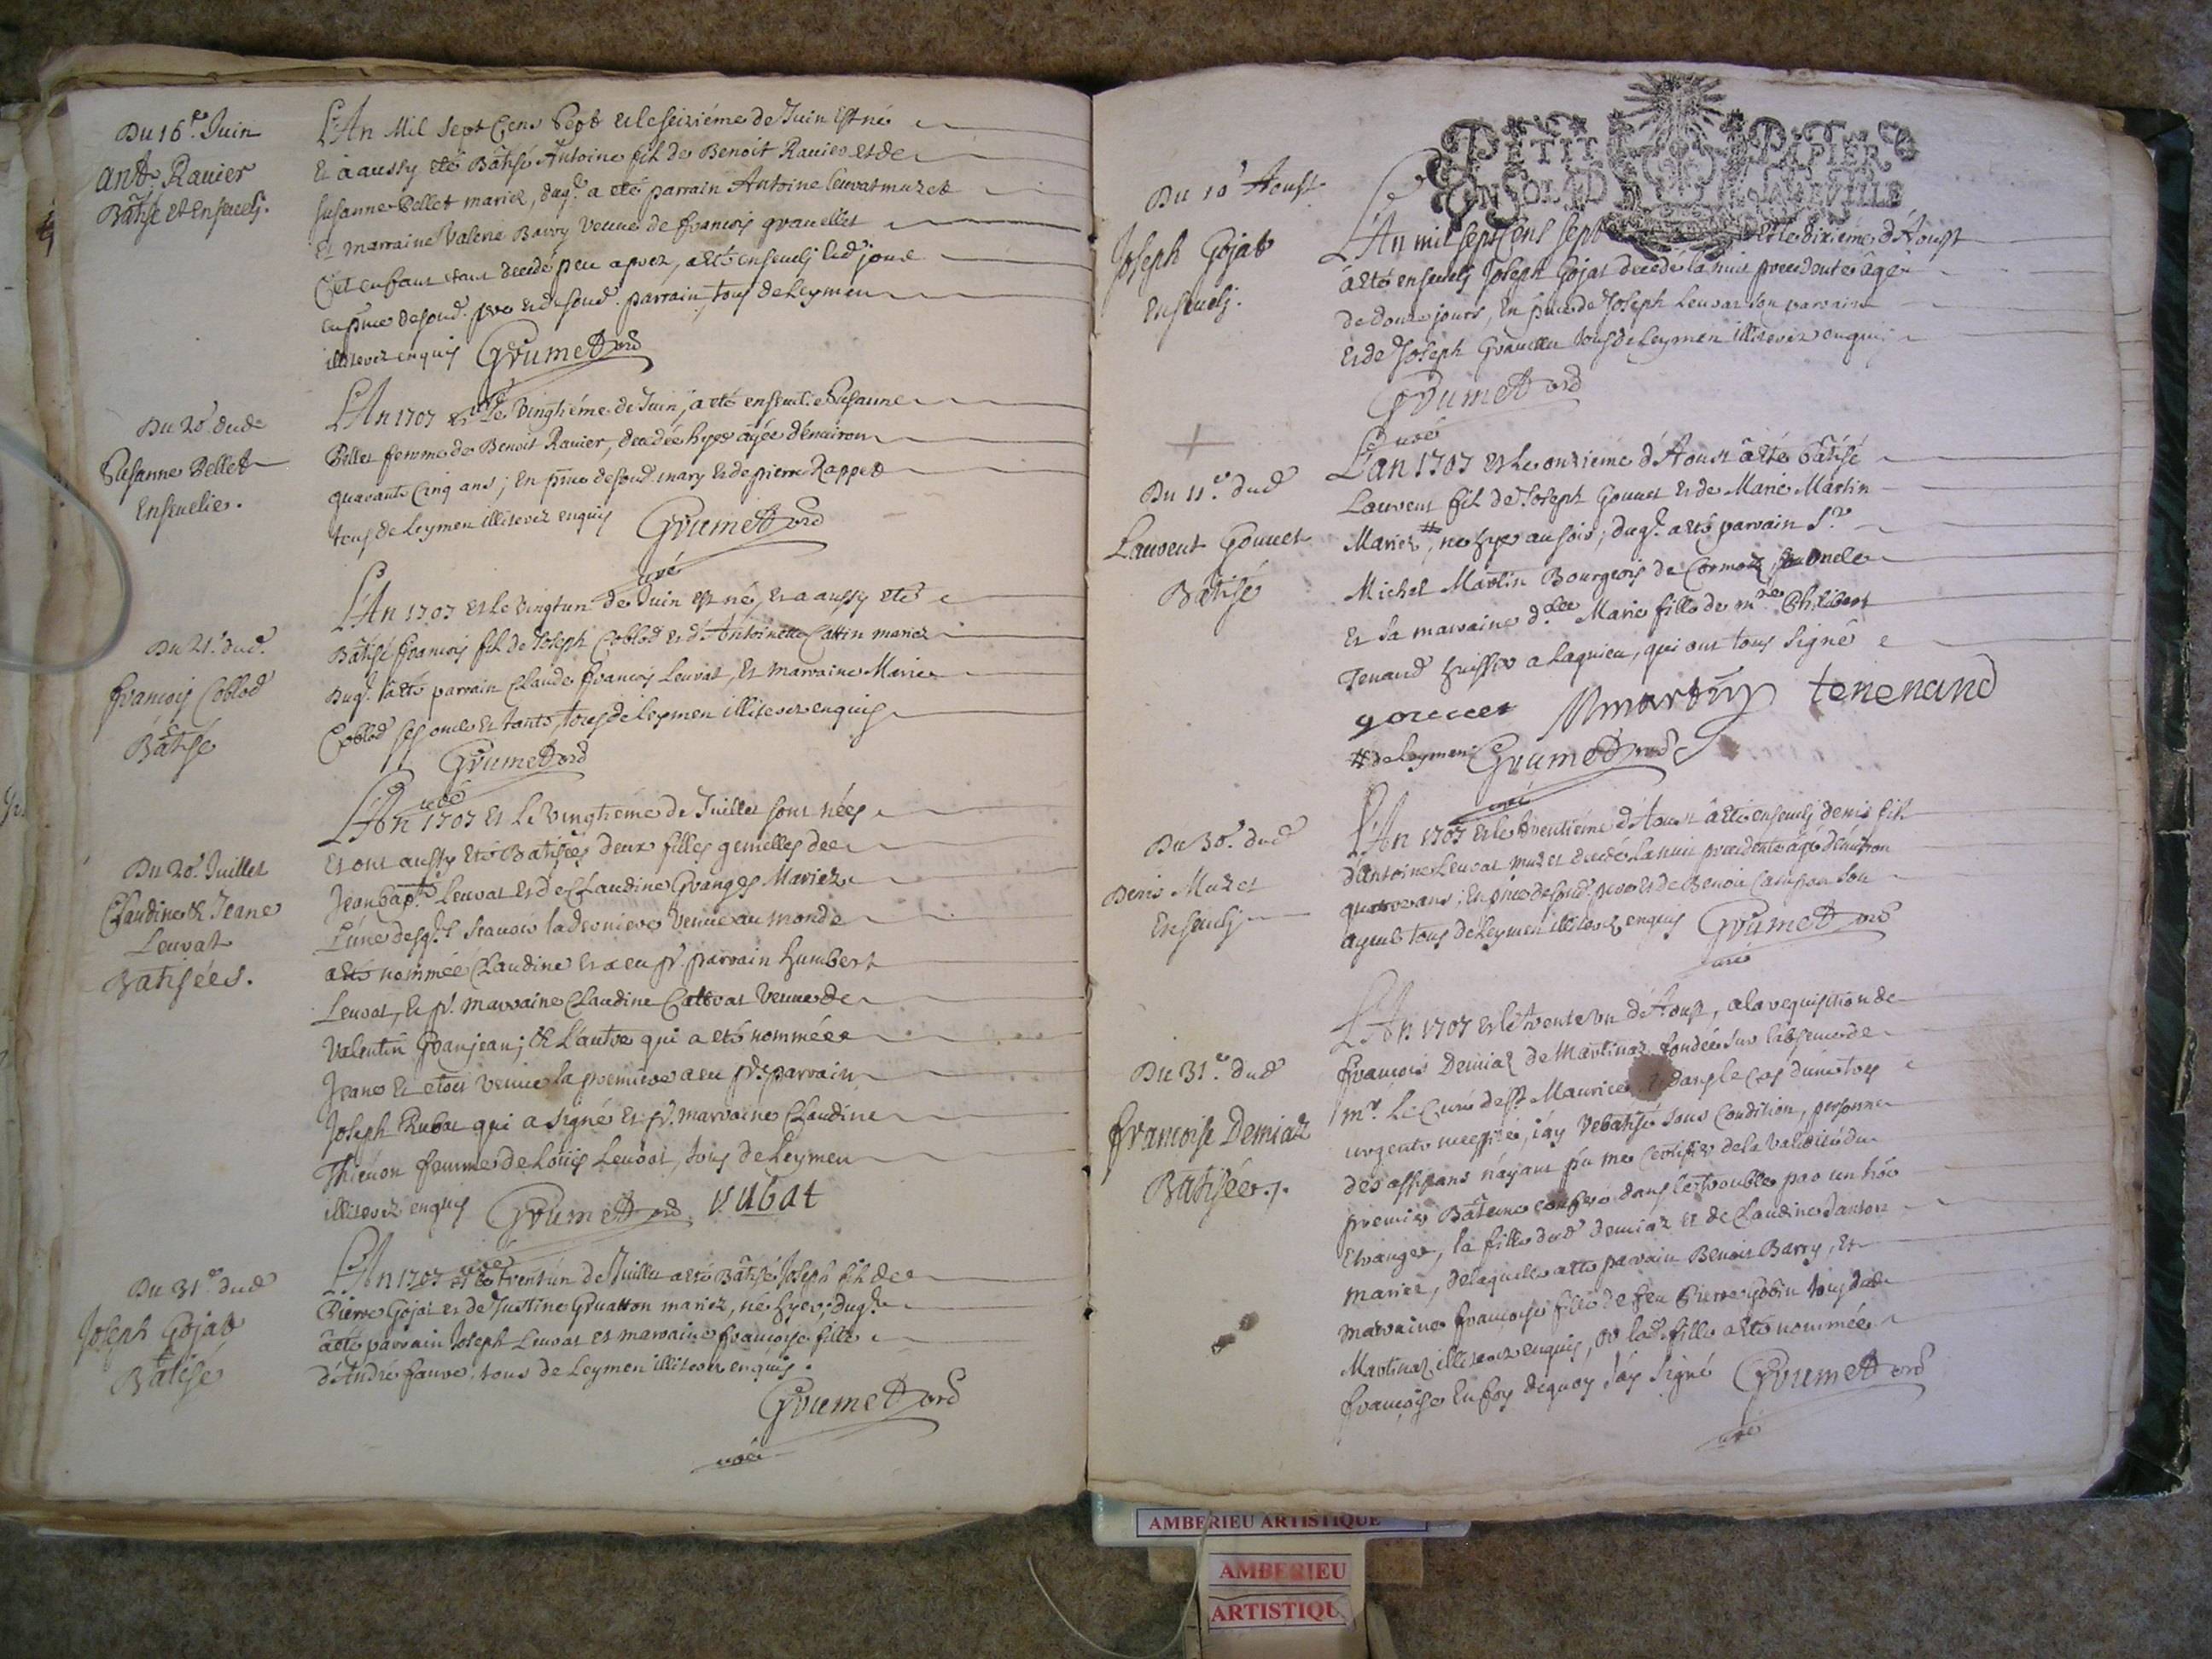 Du 16e. Juin
Ant. Ravier
Bâtisé et Enseveli.
L'An Mil Sept Cens Sept et le seiziéme de Juin Est né
Et à aussy eté Bâtisé Antoine fils de Benoit Ravier et de
Susanne Pellet mariez, duql. a eté parrain Antoine Leuvat muret
Et marraine Valerie Barry Veuve de francois gravellet
Cet enfant étant decedé peu aprez, a eté enseveli led. jour
en pnce desond. pere et desond. parrain, tous de Leymen
illiterez enquis Grumet ord
Du 20e. dud.
Susanne Pellet
Ensevelie.
L'An 1707 et Le Vingtiéme de Juin, a eté ensevelie Susanne
Pellet femme de Benoit Ravier, decedée hyer âgée d'environ
quarante Cinq ans; En pnce desond. mary et de pierre Rappet
tous de Leymen illiterez enquis Grumet ord
curé
Du 21e. dud.
francois Coblod
Bâtisé
L'An 1707 et Le Vingtun de Juin est né, et a aussy eté
Bâtisé francois fils de Joseph Coblod et d'Antoinette Cattin mariez
Duql. a eté parrain Claude francois Leuvat, et marraine Marie
Coblod ses oncle et tante, tous de Leymen illiterez enquis
Grumet ord
curé
Du 20e. Juillet
Claudine & Jeane
Leuvat
Batisées.
L'An 1707 Et Le Vingtiéme de Juillet sont nées
Et ont aussy Eté Batisées deux filles gemelles de
Jean Bapte. Leuvat et de Claudine Granges Mariez
L'une desqls. scavoir la derniere Venue au monde
a eté nommée Claudine et a eu pr. parrain humbert
Leuvat, Et pr. marraine Claudine Cattvat Veuve de
Valentin Granjean; & L'autre qui a eté nommée
Jeane Et etoit Venue la premiere a eu pr. parrain
Joseph Rubat qui a signé et pr. marraine Claudine
Thievon femme de Loüis Leuvat, tous de Leymen
illiterez enquis Grumet ord rubat
curé
Du 31e. dud
Joseph Gojat
Bâtisé
L'An 1707 et Le trentun de Juillet a eté Bâtisé Joseph fils de
Pierre Gojat et de Justine Gruatton mariez, né hyer; duql.
a eté parrain Joseph Leuvat et marraine francoise fille
d'André fauvre, tous de Leymen illiterez enquis.
Grumet ord
curé
PETIT PAPIER
Du 10e Aoust
Joseph Gojat
Enseveli.
L'An mil sept Cens sept et le dixieme d'Aoust
a eté enseveli Joseph Gojat decedé la nuit precedente âgé
de douze jours, En pnce de Joseph Leuvat son parrain
et de Joseph Gravellet tous de Leymen illiterez enquis
Grumet ord
curé
Du 11e. dud
Laurent Gouvet
Bâtisé
L'an 1707 et Le onzieme d'Aoust a eté bâtisé
Laurent fils de Joseph Gouvet et de Marie Martin
Mariez #, né hyer au soir; duql. a eté parrain Sr.
Michel Martin Bourgeois de Cormoz, oncle
Et sa marraine dlle. Marie fille de mre. Philibert
Tenand huissier a Lagnieu, qui ont tous signé
gouvet Mmartin tenenand
# de Leymen Grumet ord
curé
Du 30e. dud
Denis Muret
Enseveli
L'An 1707 et le trentiéme d'Aoust a eté enseveli denis fils
d'Antoine Leuvat muret decedé La nuit precedente âgé d'environ
quatre ans; En pnce desond. pere et de Benoit son
ayeul tous de Leymen illiterez enquis Grumet ord
curé
Du 31e. dud
francoise Demiaz
Batisée.
L'An 1707 et le trente un d'Aoust, a la requisition de
francois Demiaz de Martinaz fondée sur l'absence de
mr. Le Curé de St. Maurice et dans le cas d'une tres
urgente necessité, j'ay rebatisé sous Condition, personne
des assistans n'ayant pu me certifier de la validité du
premier Bâteme conferé dans le trouble par un tiers
Etranger, la fille dud. demiaz et de Claudine danton
mariez, de laquelle a eté parrain Benoit Barry, et
marraine francoise fille de feu Pierre Gobin tous dud
Martinaz illiterez enquis, & lad. fille a eté nommée
francoise En foy dequoy j'ay signé Grumet ord
curé
AMBERIEU ARTISTIQUE
AMBERIEU
ARTISTIQU